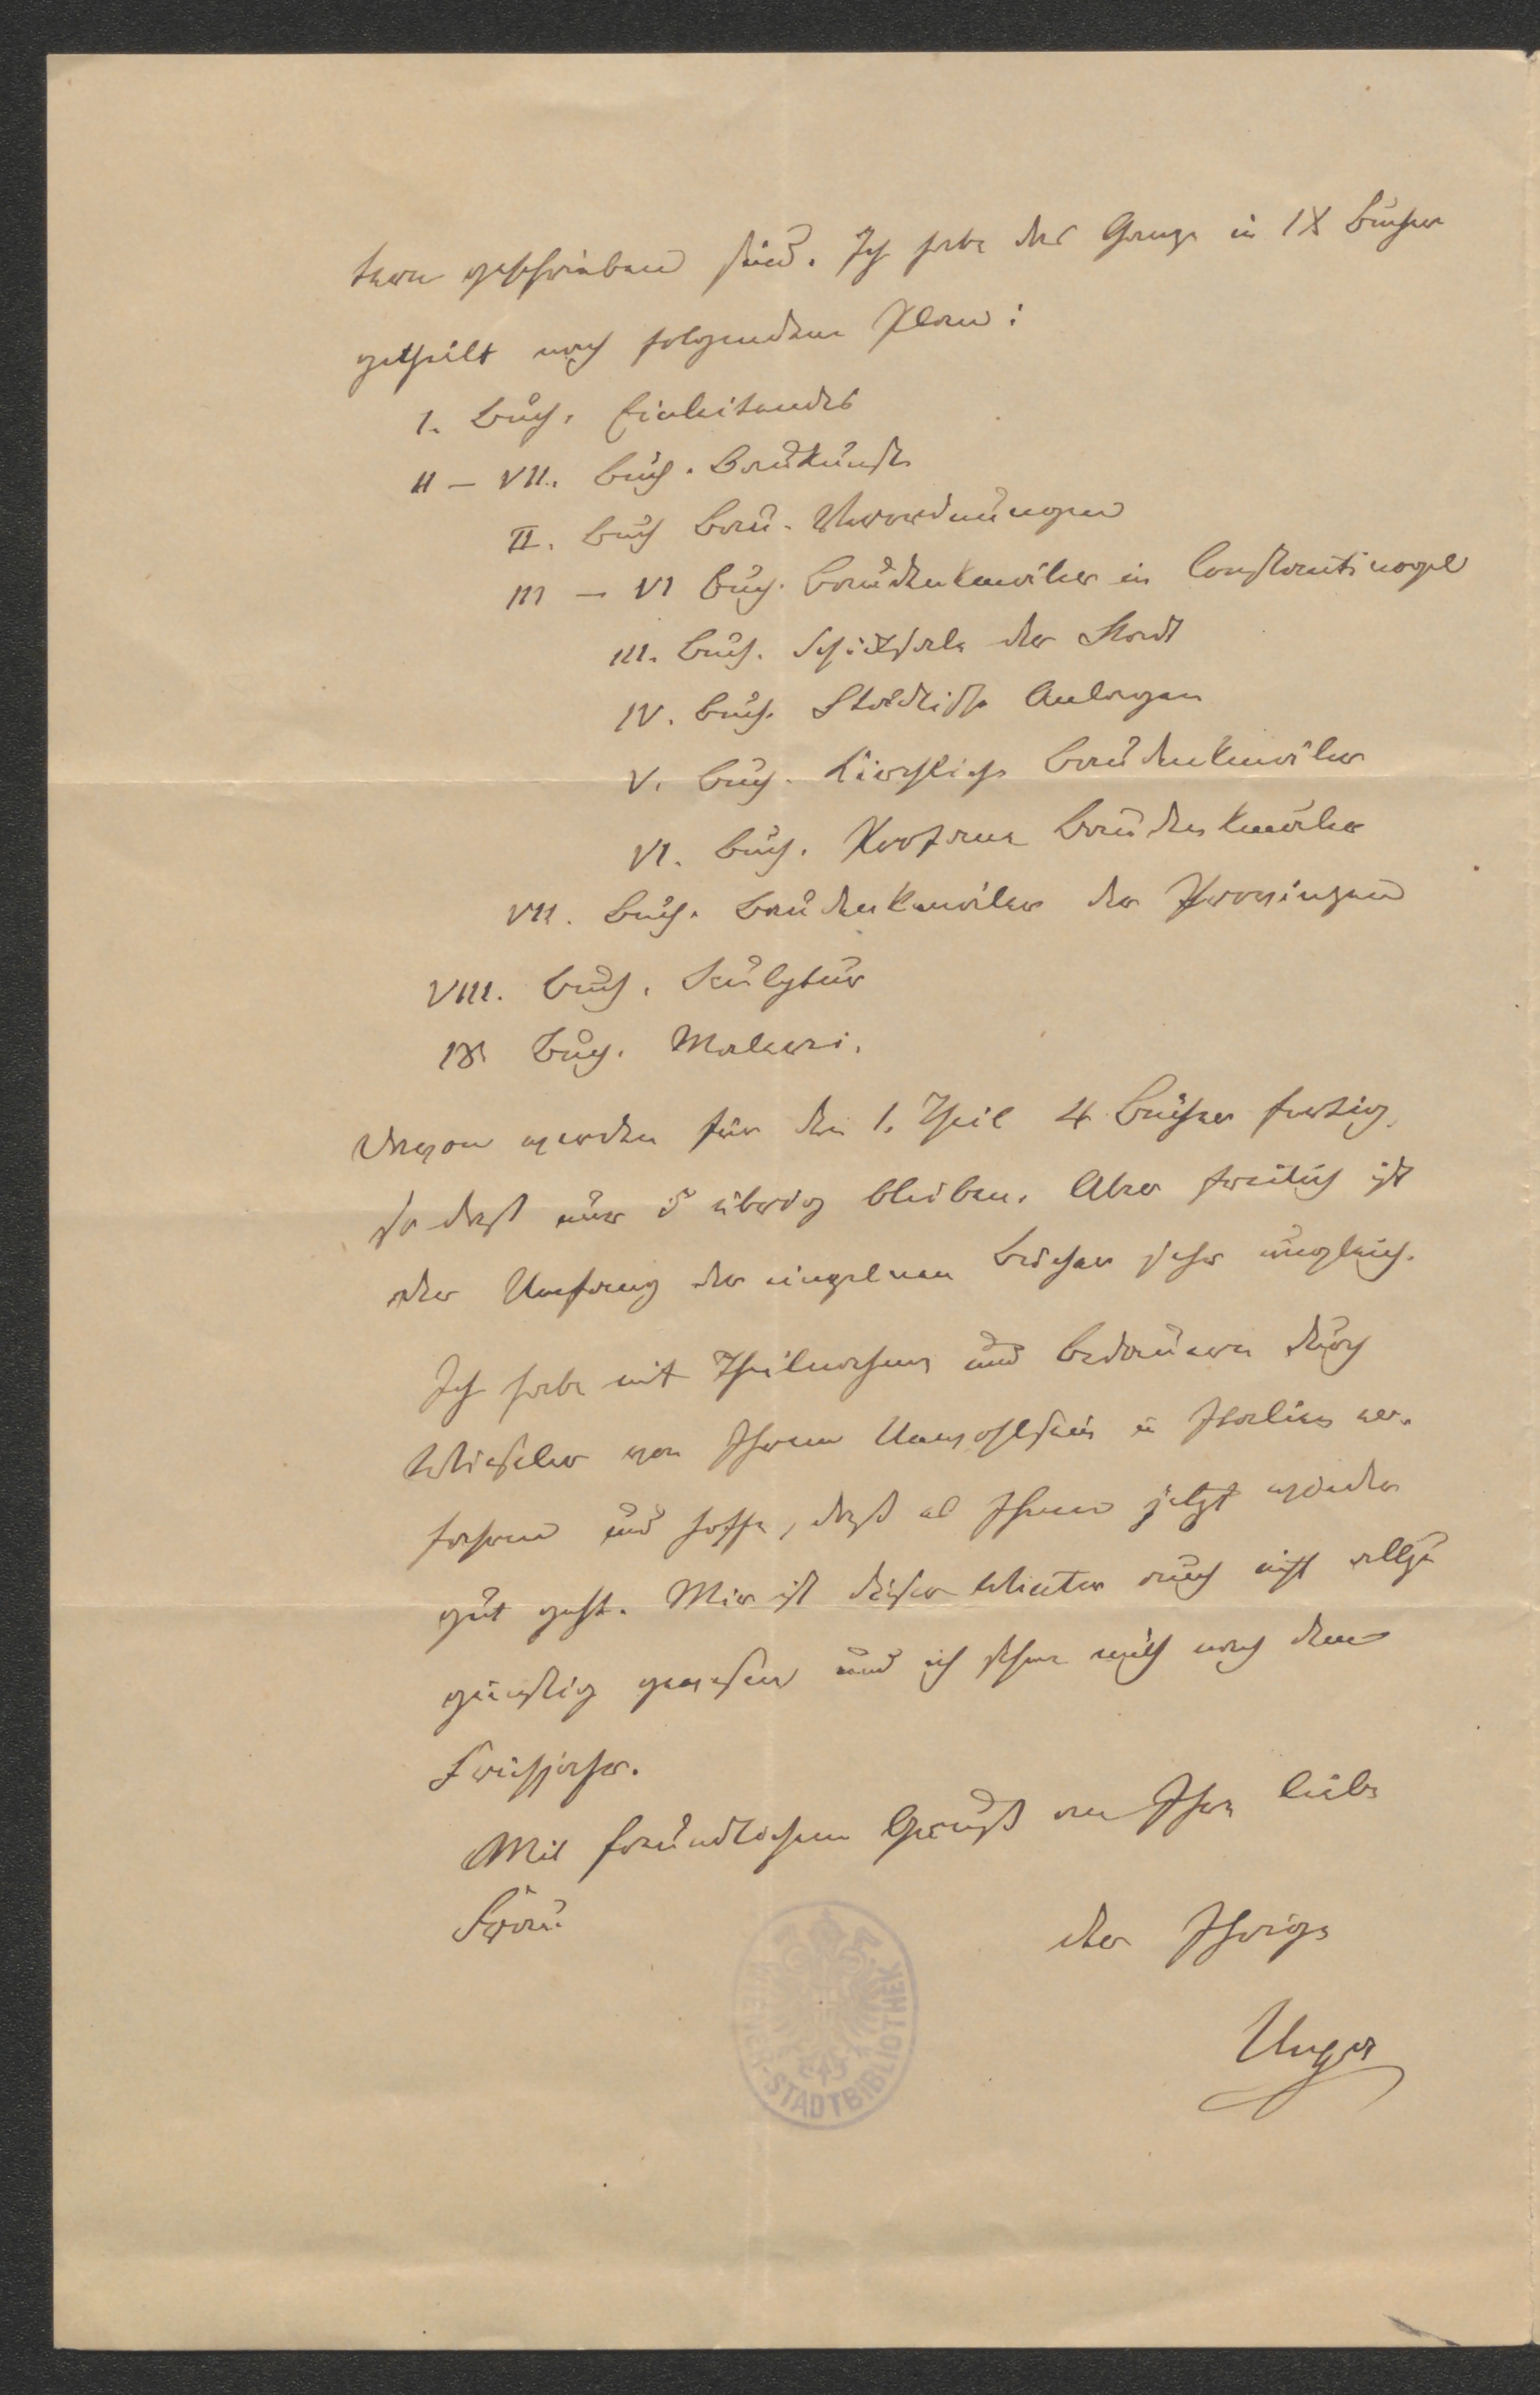 tern geschrieben sind. Ich habe das Ganze in IX Bücher
getheilt nach folgendem Plan:
I. Buch. Einleitendes
II – VII. Buch. Baukunst
II. Buch Bau-Verordnungen
III – VI Buch. Baudenkmäler in Constantinopel
III. Buch. Schicksale der Stadt
IV. Buch. Städtische Anlagen
V. Buch. Kirchliche Baudenkmäler
VI. Buch. Profane Baudenkmäler
VII. Buch. Baudenkmäler der Provinzen
VIII. Buch. Sculptur
IX Buch. Malerei.
Davon werden für den 1. Theil 4 Bücher fertig,
so daß nur 5 übrig bleiben. Aber freilich ist
der Umfang der einzelnen Bücher sehr ungleich.
Ich habe mit Theilnahme und Bedauern durch
Wieseler von Ihrem Unwohlsein in Italien er-
fahren und hoffe, daß es Ihnen jetzt wieder
gut geht. Mir ist dieser Winter auch nicht allzu
günstig gewesen und ich sehne mich nach dem
Frühjahr.
Mit freundlichem Gruß an Ihre liebe
Frau
der Ihrige
Unger
WIENER-STADTBIBLIOTHEK